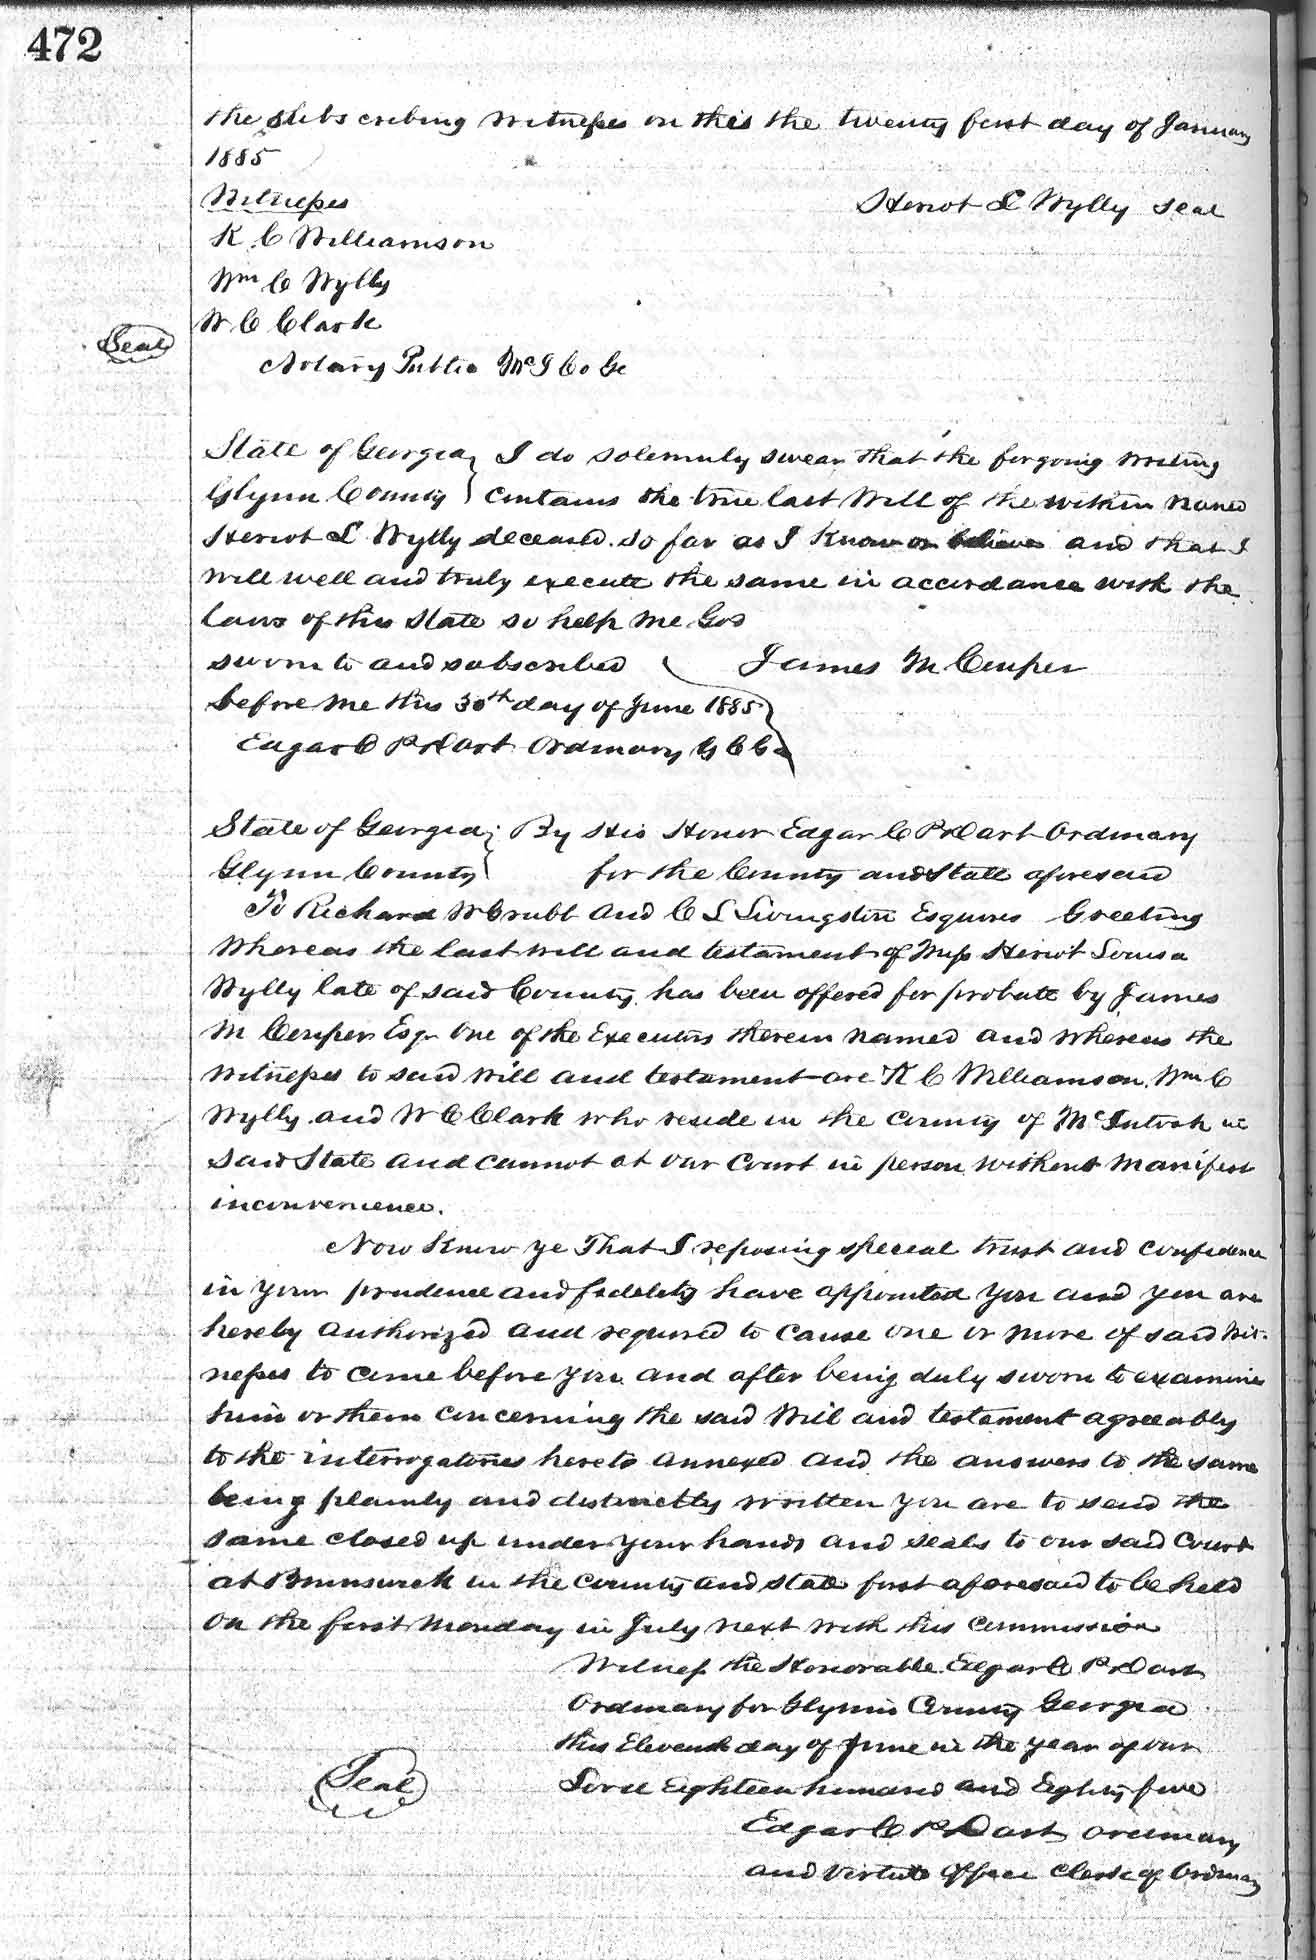 472
the subscribing witnesses on this the twenty first day of January
1885
Witnesses
Heriot L Wylly Seal
K. C Williamson
Wm C Wylly
W C Clark
Seal
Notary Public McI Co Ga
State of Georgia } I do solemnly swear that the forgoing writing
Glynn County } contains the true last Will of the within named
Heriot L Wylly deceased so far as I know or believe and that I
will well and truly execute the same in accordance with the
laws of this State so help me God
sworn to and subscribed
James M Couper
before me this 30th day of June 1885
Edgar C P Dart Ordinary G C Ga
State of Georgia } By His Honor Edgar C P Dart Ordinary
Glynn County } for the County and State aforesaid
To Richard W Grubb and C L Livingston Esquires Greeting
Whereas the last will and testament of Miss Heriot Louisa
Wylly late of said County has been offered for probate by James
M Couper Esqr One of the Executors therein named and whereas the
witnesses to said will and testament are K C Williamson. Wm C
Wylly and W C Clark who reside in the county of McIntosh in
said State and cannot at our Court in person without manifest
inconvenience.
Now Know ye That I reposing special trust and confidence
in your prudence and fidelity have appointed you and you are
hereby authorized and required to cause one or more of said wit-
nesses to come before you and after being duly sworn to examine
him or them concerning the said Will and testament agreeably
to the interrogatories hereto annexed and the answers to the same
being plainly and distinctly written you are to send the
same closed up under your hands and seals to our said Court
at Brunswick in the county and state first aforesaid to be held
on the first Monday in July next with this commission
Witness the Honorable Edgar C P Dart
Ordinary for Glynn County Georgia
this Eleventh day of June in the year of our
Lord Eighteen hundred and Eighty five
Seal
Edgar C P Dart Ordinary
and virtute officei Clerk of Ordinary